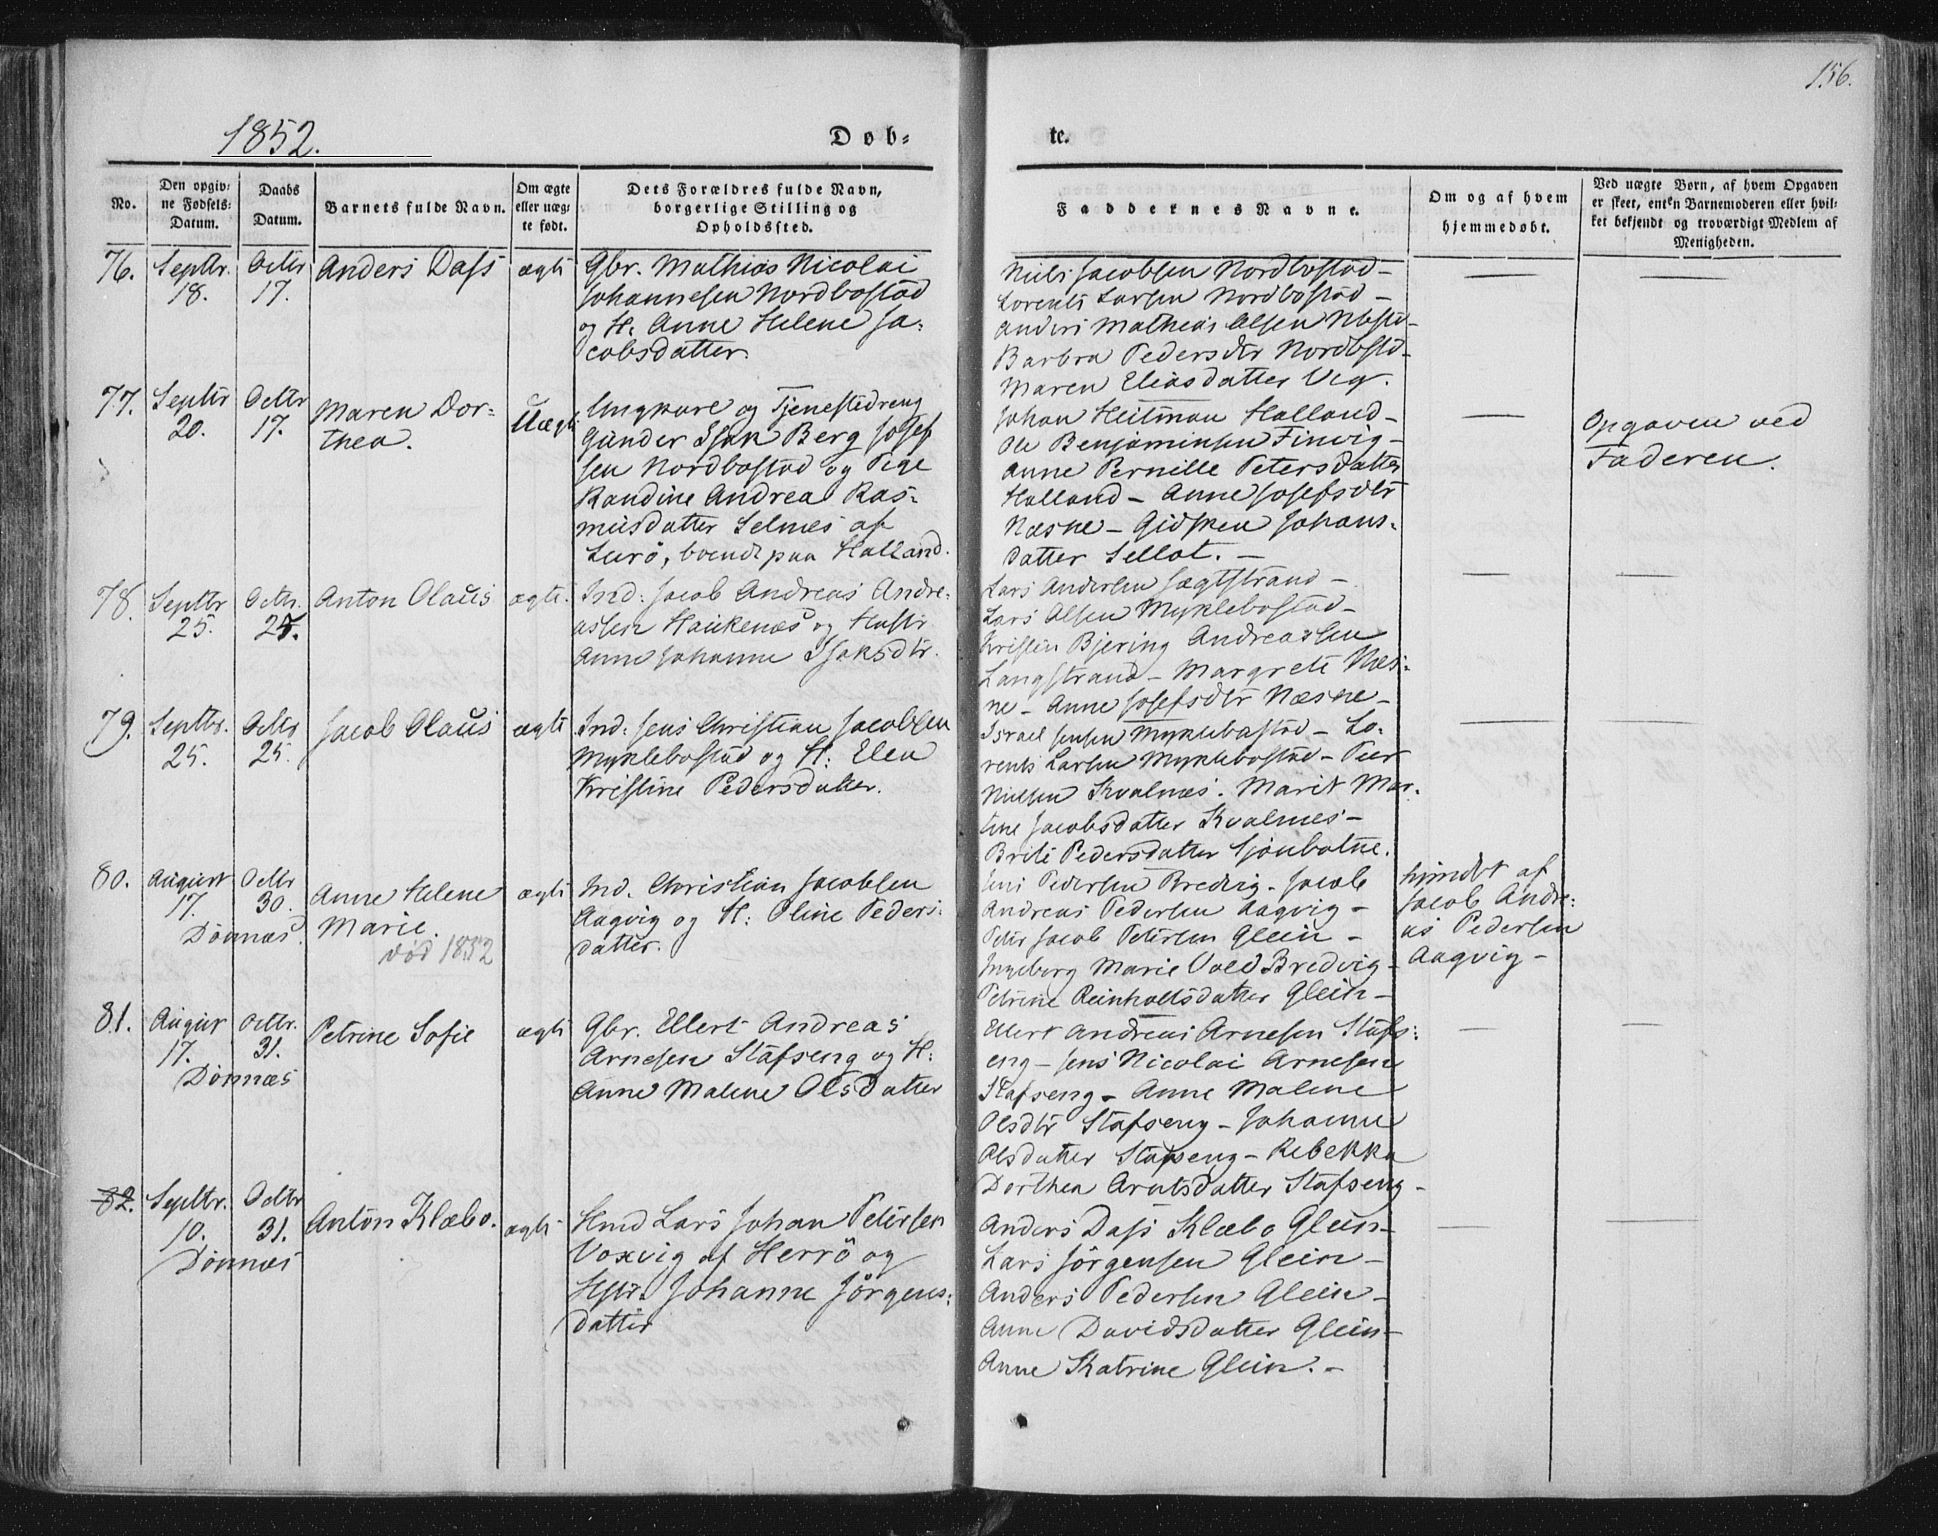 156.
1852.
Døb-
te.
No.
Den opgiv-
ne Fødsels-
Datum.
Daabs
Datum.
Barnets fulde Navn.
Om ægte
eller uæg-
te født.
Dets Forældres fulde Navn,
borgerlige Stilling og
Opholdssted.
Faddernes Navne.
Om og af hvem
hjemmedøbt.
Ved uægte Børn, af hvem Opgaven
er skeet, enten Barnemoderen eller hvil-
ket bekjendt og troværdigt Medlem af
Menigheden.
76.
Septbr.
18.
Octbr
17.
Anders Dass
ægte
Gbr. Mathias Nicolai
Johannesen Nordbostad
og H. Anne Helene Ja-
cobsdatter.
Niels Jacobsen Nordbostad -
Lorents Larsen Nordbostad -
Anders Mathias Olsen Nbstd -
Barbra Pedersdtr Nordbstd -
Maren Eliasdatter Veg.
77.
Septbr
20.
Octbr
17.
Maren Dor-
thea.
Uægte
Ungkare og Tjenestedreng
Gunder Isak Berg Josef
sen Nordbostad og Pige
Randine Andrea Ras-
musdatter Selnes af
Lurö, boende paa Halland.
Johan Heitman Halland -
Ole Benjaminsen Finvig -
Anne Pernille Petersdatter
Halland - Anne Josefsdtr
Næsne - Gidsken Johans-
datter Sellot. -
Opgaven ved
Faderen.
78.
Septbr
25.
Octbr.
25.
Anton Olaus
ægte.
Ind. Jacob Andreas Andre-
assen Haukenæs og Hustr
Anne Johanne Isaksdtr.
Lars Andersen Sægtstrand -
Lars Olsen Myklebostad -
Kristen Bjering Andreassen
Langstrand - Margrete Næs-
ne - Anne Josefsdtr Næsne -
79.
Septbr.
25.
Octbr
25.
Jacob Olaus
ægte
Ind. Jens Christian Jacobsen
Myklebostad og H: Elen
Kristine Pedersdatter.
Israel Jensen Myklebostad - Lo-
rents Larsen Myklebostad - Peer
Nielsen Kvalnæs. Marit Mar-
tine Jacobsdatter Kvalnes -
Brite Pedersdatter Sjonbotne.
80.
August
17.
Octbr
30.
Dönnæs.
Anne Helene
Marie.
död 1852
ægte
Ind. Christian Jacobsen
Aagvig og H: Oline Peders-
datter.
Jens Pedersen Bredvig - Jacob
Andreas Pedersen Aagvig -
Peter Jacob Petersen Glein -
Ingeborg Marie Vold Bredvig -
Petrine Reinholtsdatter Glein -
hjmdt af
Jacob Andre-
as Pedersen
Aagvig -
81.
August
17.
Octbr.
31.
Dönnæs
Petrine Sofie
ægte
Gbr. Ellert Andreas
Arnesen Stafseng og H:
Anne Malene Olsdatter
Ellert Andreas Arnesen Stafs-
eng - Jens Nicolai Arnesen
Stafseng - Anne Malene
Olsdtr Stafseng - Johanne
Olsdatter Stafseng - Rebekka
Dorthea Arntsdatter Stafseng -
82.
Septbr.
10.
Octbr
31.
Dönnæs
Anton Klæbo.
ægte
Hmd Lars Johan Petersen
Voxvig af Herrö og
Hstr. Johanne Jörgens-
datter
Anders Dass Klæbo Glein -
Lars Jörgensen Glein -
Anders Pedersen Glein -
Anne Davidsdatter Glein -
Anne Katrine Glein. -